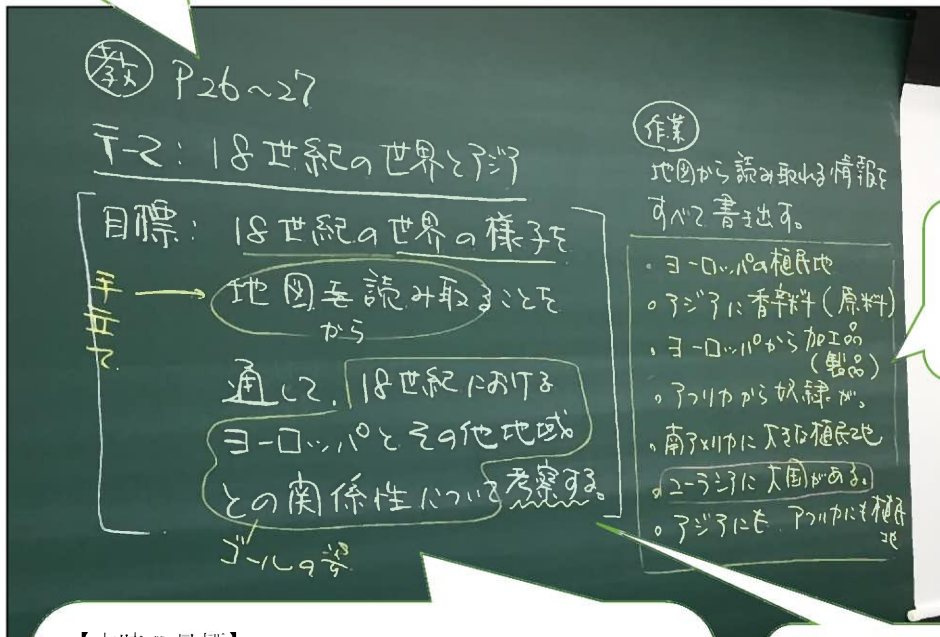 教 P26～27
テーマ：18世紀の世界とアジア
目標：18世紀の世界の様子を
手立て
地図を読み取ることを
から
通して、18世紀における
ヨーロッパとその他地域
との関係性について考察する。
ゴールの姿
作業
地図から読み取れる情報を
すべて書き出す。
・ヨーロッパの植民地
・アジアに香辛料（原料）
・ヨーロッパから加工品
（製品）
・アフリカから奴隷が。
・南アメリカに大きな植民地
・ユーラシアに大国がある。
・アジアにも アフリカにも植民
地